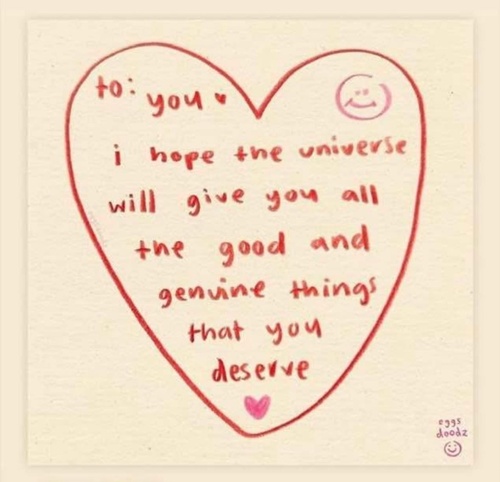 to: you
i hope the universe
will give you all
the good and
genuine things
that you
deserve
eggs
doodz